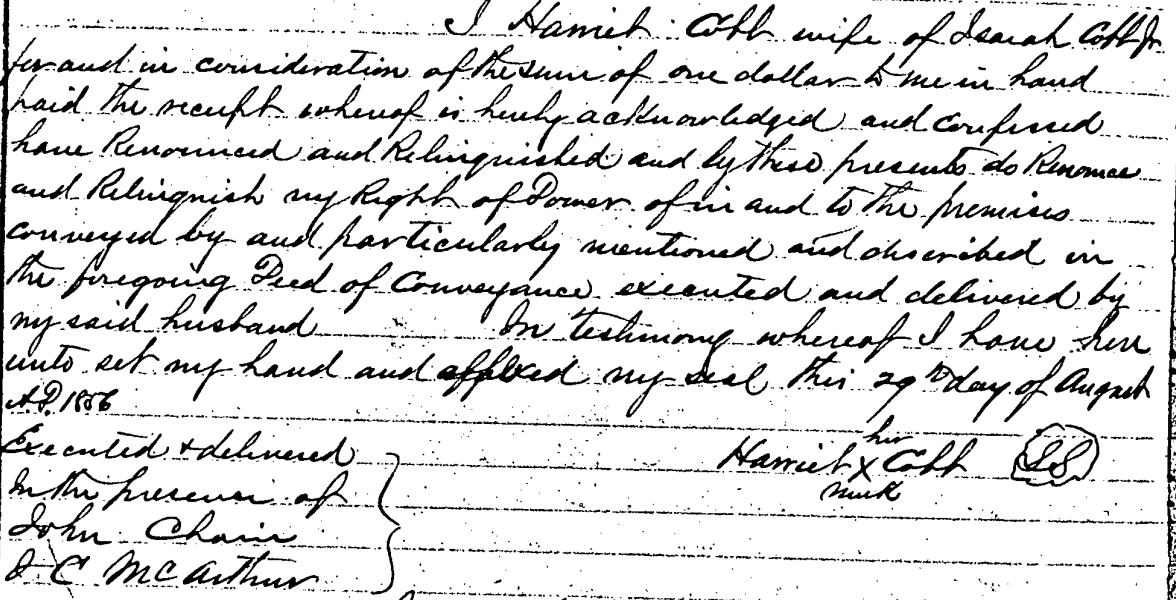 I Harriet Cobb wife of Isaiah Cobb Jr
for and in consideration of the sum of one dollar to me in hand
paid the receipt whereof is hereby acknowledged and confessed
have Renounced and Relinquished and by these presents do Renounce
and Relinquish my Right of Dower of in and to the premises
conveyed by and particularly mentioned and described in
the foregoing Deed of Conveyance executed and delivered by
my said husband In testimony whereof I have here
unto set my hand and affixed my seal this 29th day of August
A.D. 1856
Executed & delivered
In the presence of
John Chain
J C McArthur
Harriet her x mark Cobb LS